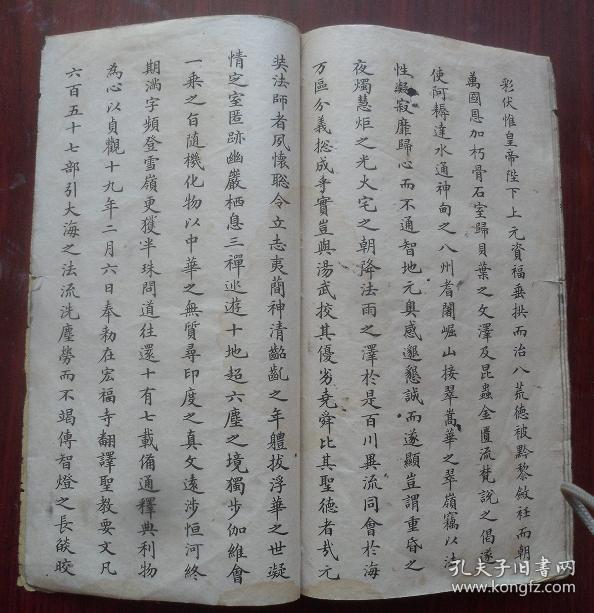 彩伏惟皇帝陛下上元資福垂拱而治八荒德被黔黎斂衽而朝
萬國恩加朽骨石室歸貝葉之文澤及昆蟲金匱流梵說之偈遂
使阿耨達水通神甸之八州耆闍崛山接翠嵩華之翠嶺竊以法
性凝寂靡歸心而不通智地元奧感邈懇誠而遂顯豈謂重昏之
夜燭慧炬之光火宅之朝降法雨之澤於是百川異流同會於海
万區分義総成乎實豈與湯武挍其優劣堯舜比其聖德者哉元
奘法師者夙懷聡令立志夷蕳神清齠齔之年軆拔浮華之世凝
情定室匿跡幽巖栖息三禪巡遊十地超六塵之境獨步伽維會
一乗之旨随機化物以中華之無質尋印度之真文遠涉恒河終
期滿字頻登雪嶺更獲半珠問道往還十有七載備通釋典利物
為心以貞觀十九年二月六日奉勅在宏福寺翻譯聖教要文凡
六百五十七部引大海之法流洗塵勞而不竭傳智燈之長燄皎
孔夫子旧书网
www.kongfz.com